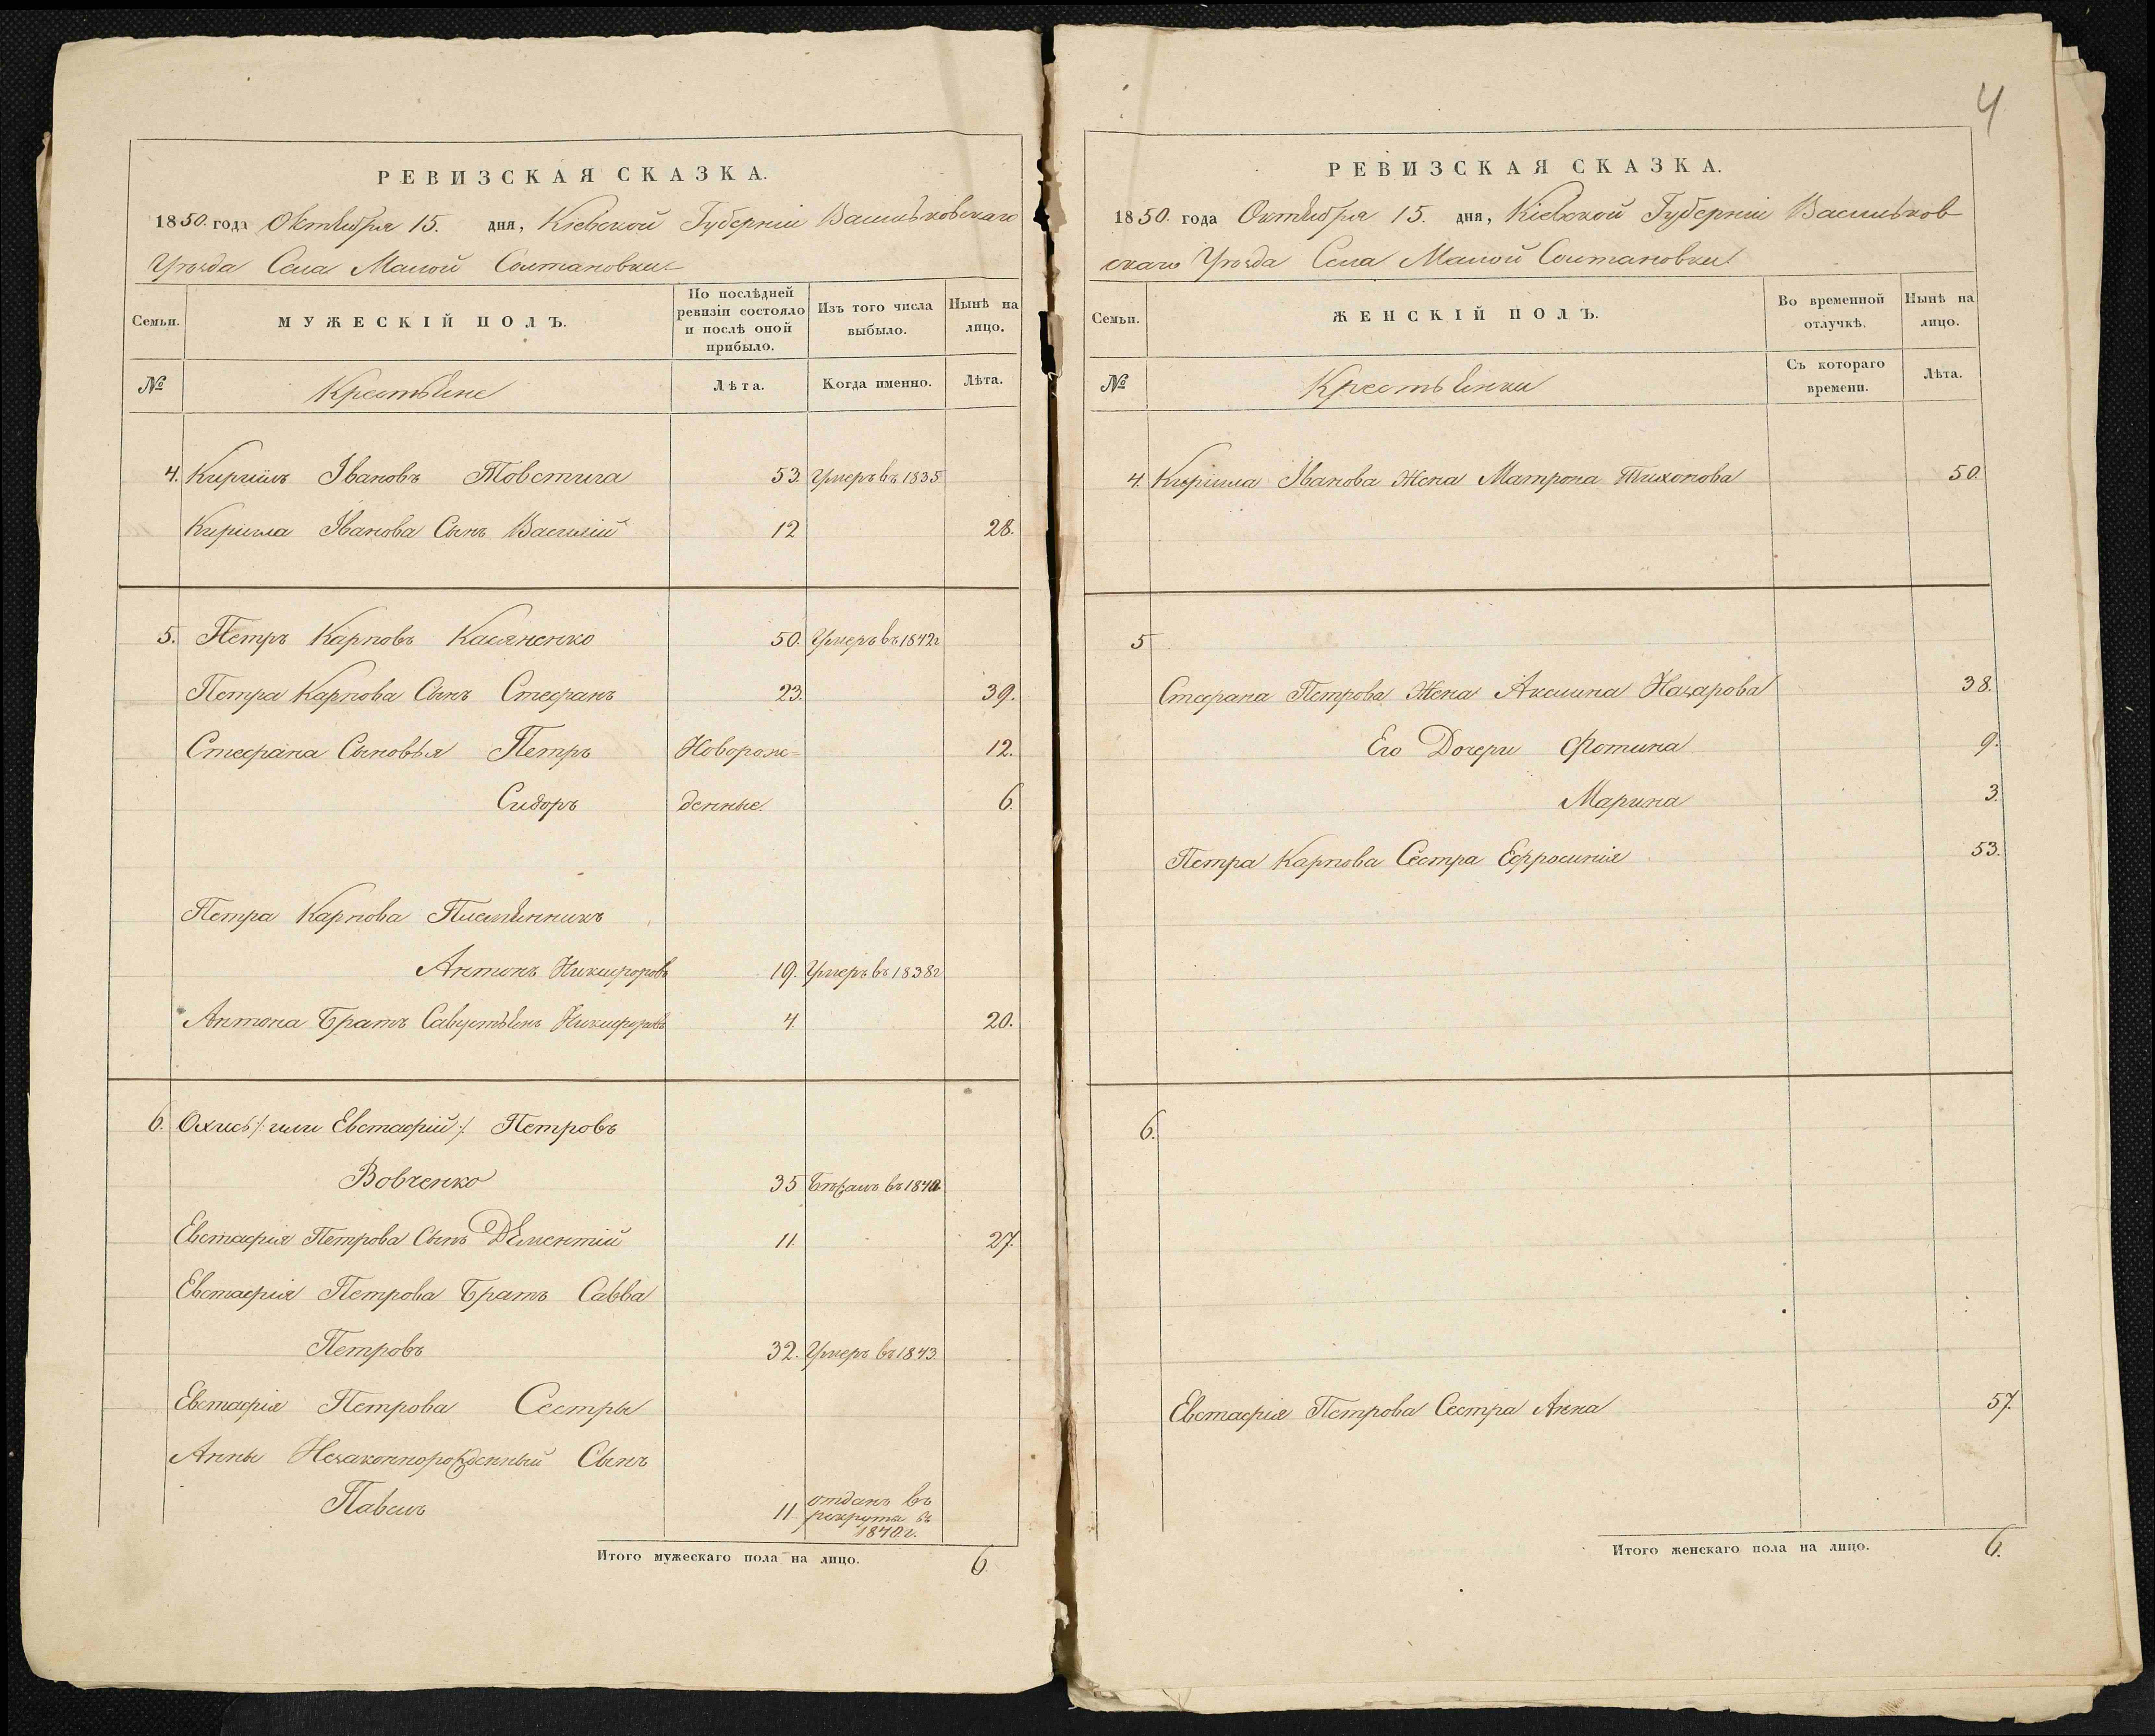 РЕВИЗСКАЯ СКАЗКА.
1850. года Октября 15. дня, Кіевской Губерніи Васильковскаго
Уѣзда Села Малой Солтановки
Семьи.
МУЖЕСКІЙ ПОЛЪ.
По послѣдней ревизіи состояло и послѣ оной прибыло.
Изъ того числа выбыло.
Нынѣ на лицо.
№
Крестьяне
Лѣта.
Когда именно.
Лѣта.
4. Кирилъ Івановъ Товстига 53. Умеръ въ 1835
Кирила Іванова Сынъ Василій 12 28.
5. Петръ Карповъ Касяненко 50. Умеръ въ 1842г
Петра Карпова Сынъ Стефанъ 23. 39.
Стефана Сыновья Петръ Новорож= 12.
Сидоръ денные. 6.
Петра Карпова Племянникъ
Антонъ Никифоровъ 19. Умеръ въ 1838г
Антона Братъ Савустьянъ Никифоровъ 4. 20.
6. Охисъ /: или Евстафій :/ Петровъ
Вовченко 35 Бѣжалъ въ 184
Евстафія Петрова Сынъ Дементій 11. 27.
Евстафія Петрова Братъ Савва
Петровъ 32. Умеръ въ 1843
Евстафія Петрова Сестры
Анны Незаконнорожденный Сынъ
Павелъ 11. отданъ въ
рекруты въ
1840.г.
Итого мужескаго пола на лицо. 6.
4
РЕВИЗСКАЯ СКАЗКА.
1850. года Октября 15. дня, Кіевской Губерніи Васильков
скаго Уѣзда Села Малой Солтановки
Семьи.
ЖЕНСКІЙ ПОЛЪ.
Во временной отлучкѣ.
Нынѣ на лицо.
№
Крестьянки
Съ котораго времени.
Лѣта.
4. Кирила Іванова Жена Матрона Тихонова 50.
5
Стефана Петрова Жена Акилина Назарова 38.
Его Дочери Фотина 9.
Марина 3.
Петра Карпова Сестра Ефросинія 53.
6.
Евстафія Петрова Сестра Анна 57.
Итого женскаго пола на лицо. 6.